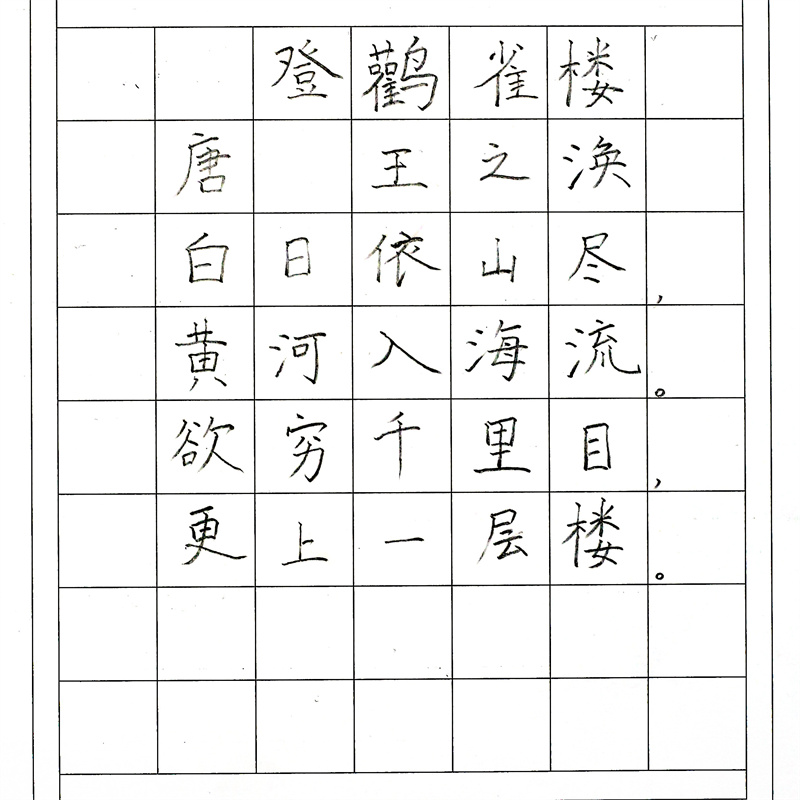 登鹳雀楼
唐 王之涣
白日依山尽,
黄河入海流。
欲穷千里目,
更上一层楼。